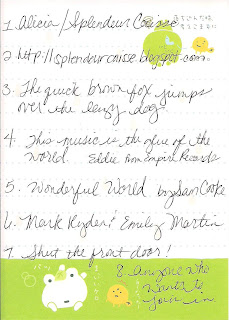 1. Alicia / Splendeur Causse
2. http://splendeurcausse.blogspot.com
3. The quick brown fox jumps
over the lazy dog
4. This music is the glue of the
world. Eddie from Empire Records
5. Wonderful World by Sam Cooke
6. Mark Ryden & Emily Martin
7. Shut the front door!
8. Anyone who
wants to
join in